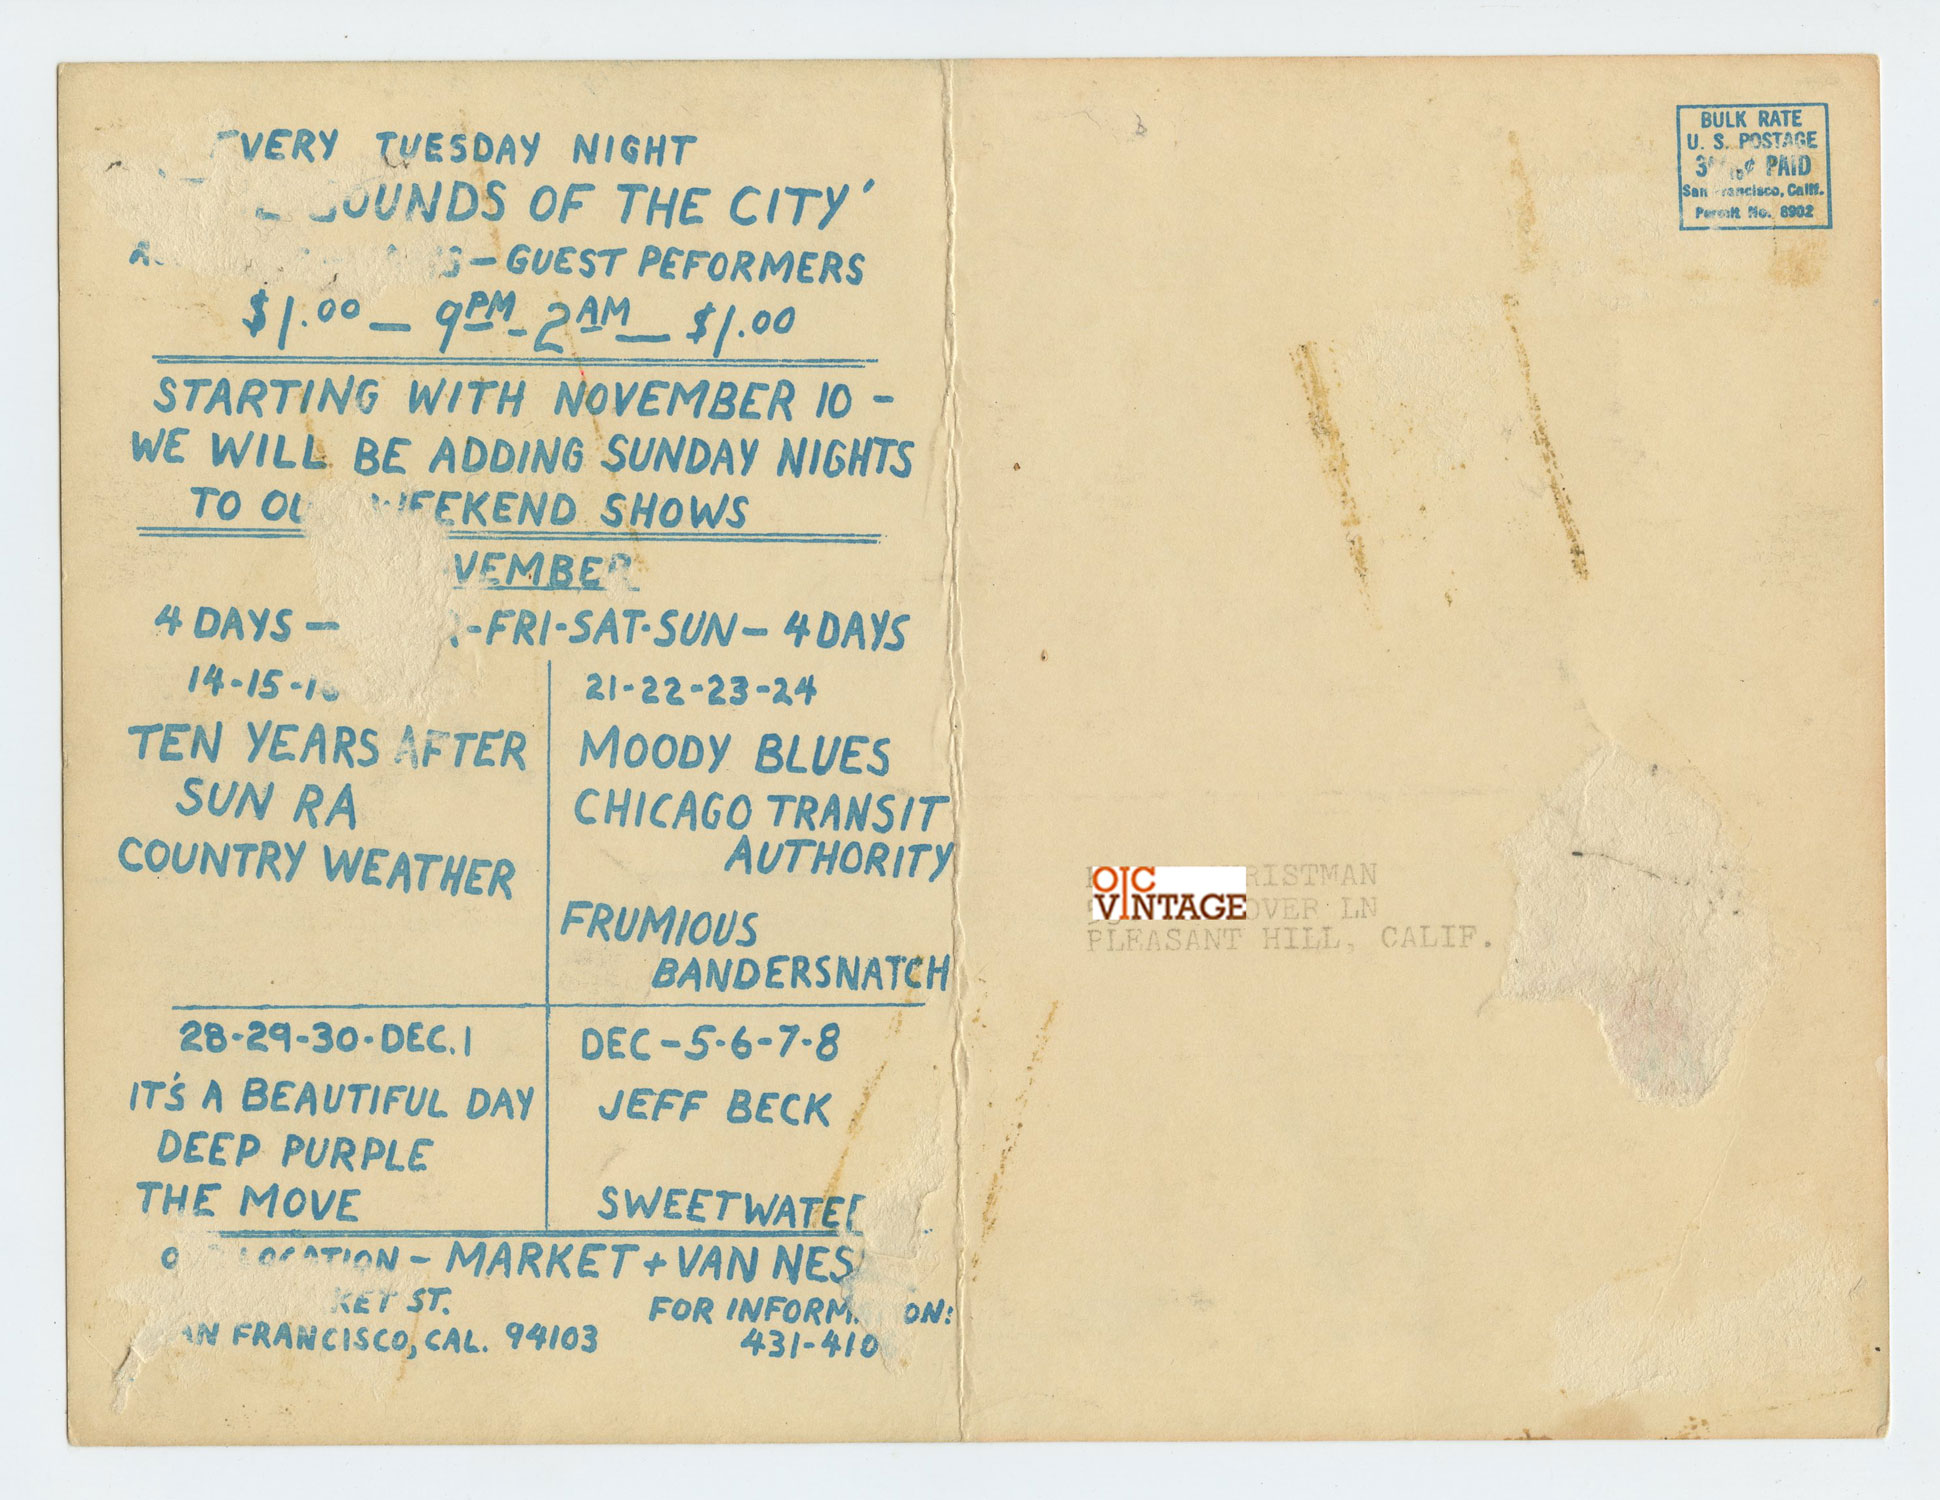 TUESDAY NIGHT
OF THE CITY'
- GUEST PEFORMERS
$1.00 — 9PM - 2AM — $1.00
STARTING WITH NOVEMBER 10 -
WE WILL BE ADDING SUNDAY NIGHTS
TO WEEKEND SHOWS
4 DAYS — -FRI-SAT-SUN — 4 DAYS
14-15-
TEN YEARS AFTER
SUN RA
COUNTRY WEATHER
21-22-23-24
MOODY BLUES
CHICAGO TRANSIT
AUTHORITY
FRUMIOUS
BANDERSNATCH
28-29-30-DEC.1
IT'S A BEAUTIFUL DAY
DEEP PURPLE
THE MOVE
DEC-5-6-7-8
JEFF BECK
SWEETWATER
LOCATION - MARKET + VAN NES
ST.
SAN FRANCISCO, CAL. 94103
FOR INFORMATION:
431-410
BULK RATE
U. S. POSTAGE
PAID
San Francisco, Calif.
Permit No. 8902
OC
VINTAGE
RISTMAN
OVER LN
PLEASANT HILL, CALIF.